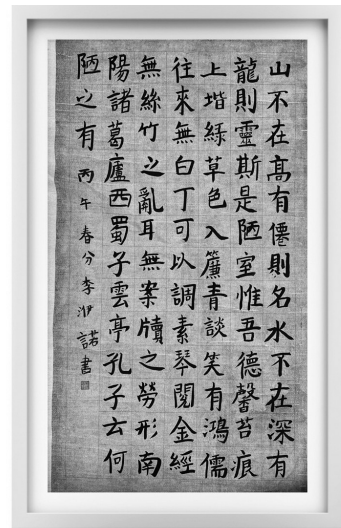 山不在高有僊則名水不在深有
龍則靈斯是陋室惟吾德馨苔痕
上堦綠草色入簾青談笑有鴻儒
往來無白丁可以調素琴閱金經
無絲竹之亂耳無案牘之勞形南
陽諸葛廬西蜀子雲亭孔子云何
陋之有 丙午春分李諾書